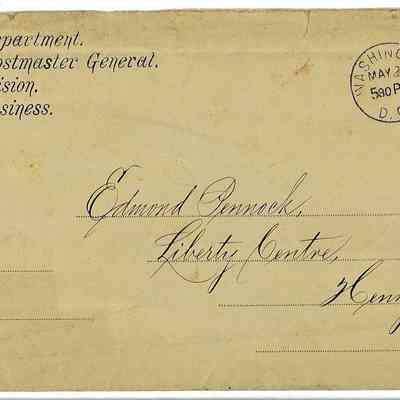 partment.
ostmaster General.
ision.
siness.
WASHING
MAY
530 P
D.C
Edmond Pennock,
Liberty Centre,
Henry